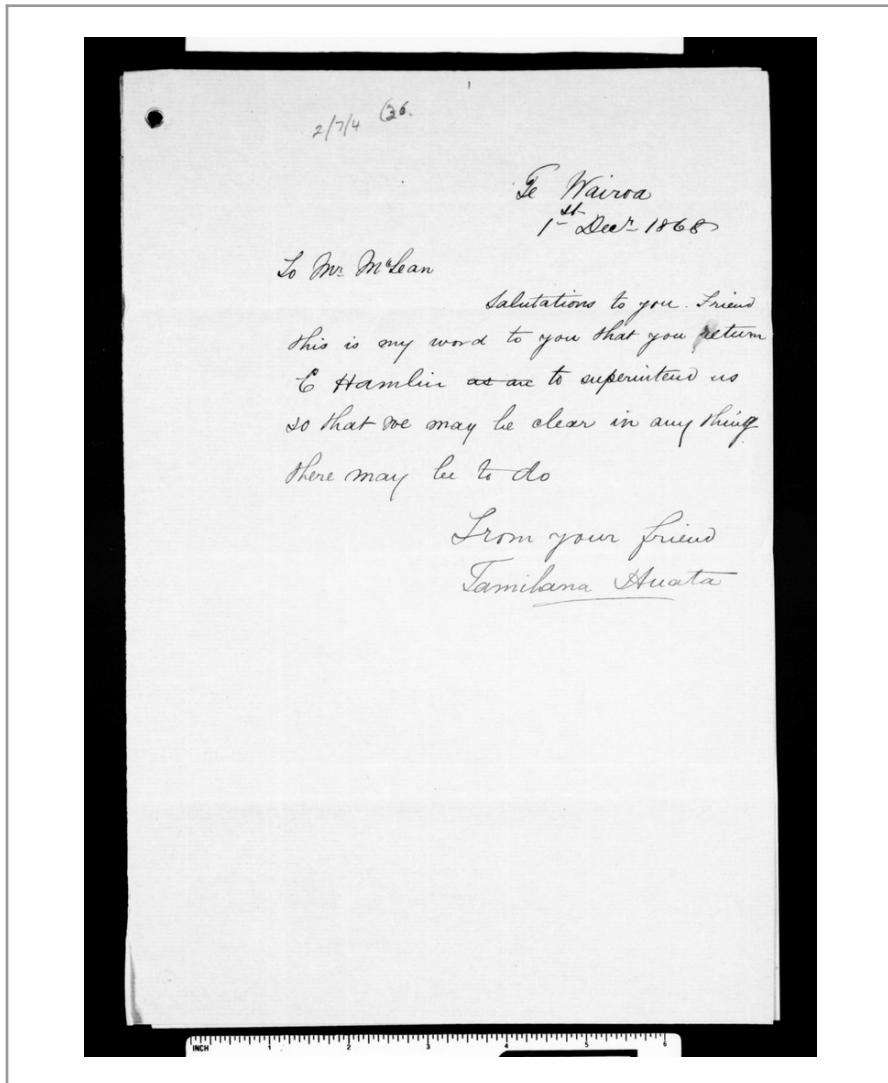 2/7/4 (36.
Te Wairoa
1st Decr 1868
To Mr. McLean
Salutations to you. Friend
this is my word to you that you return
E Hamlin as an to superintend us
so that we may be clear in any thing
there may be to do
From your friend
Tamihana Huata
INCH 1 2 3 4 5 6